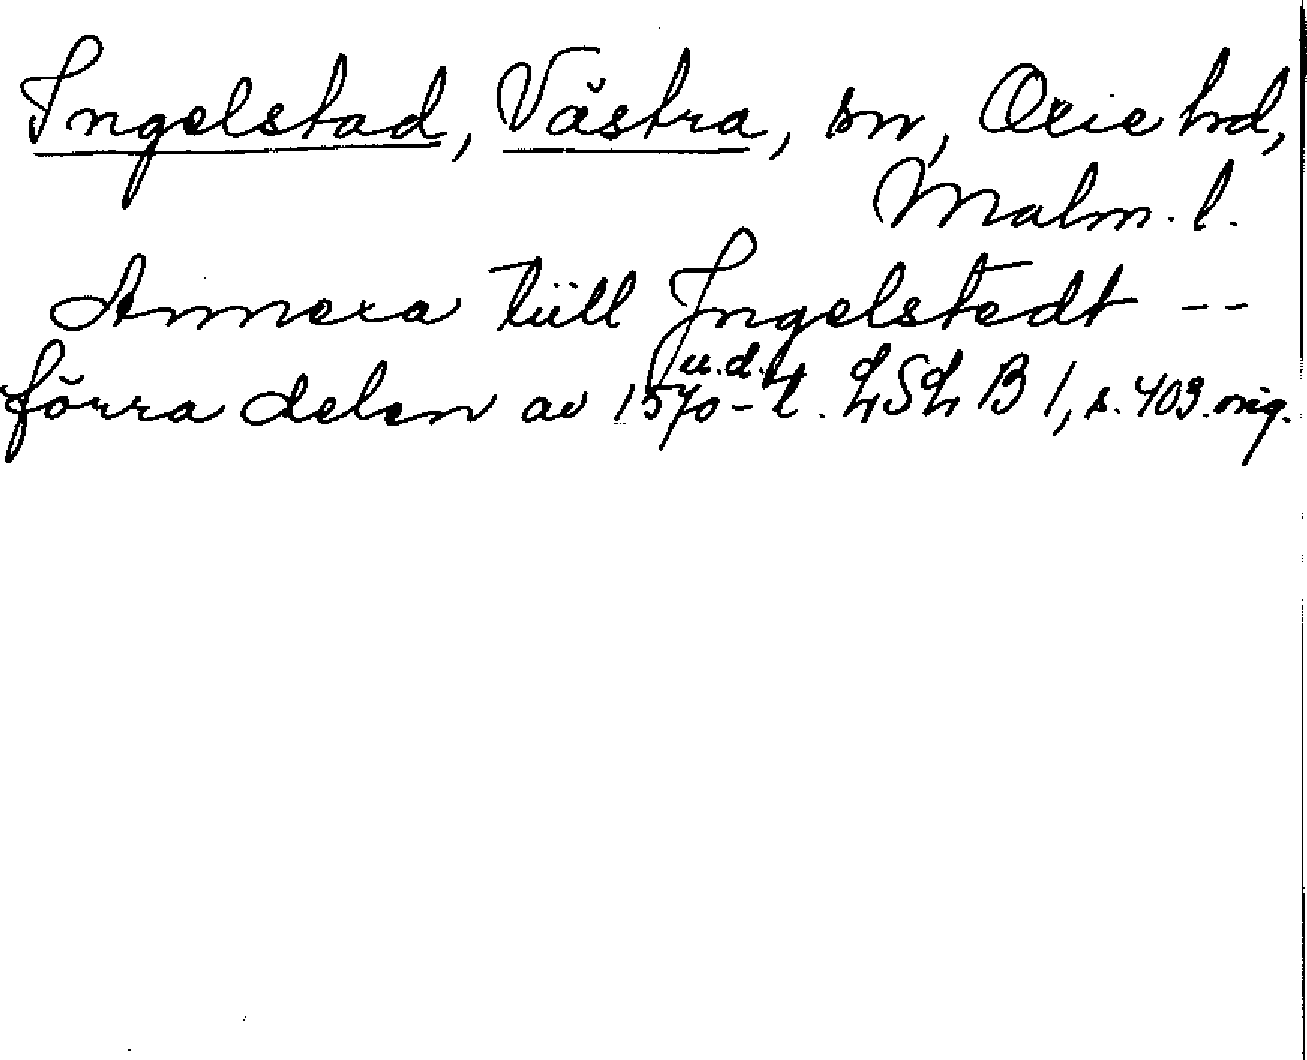 Ingelstad, Västra, sn, Oxie hd,
Malm. l.
Annexa tiill Ingelstedt --
u.d.
förra delen av 1570-t. LSL B 1, s. 403. orig.